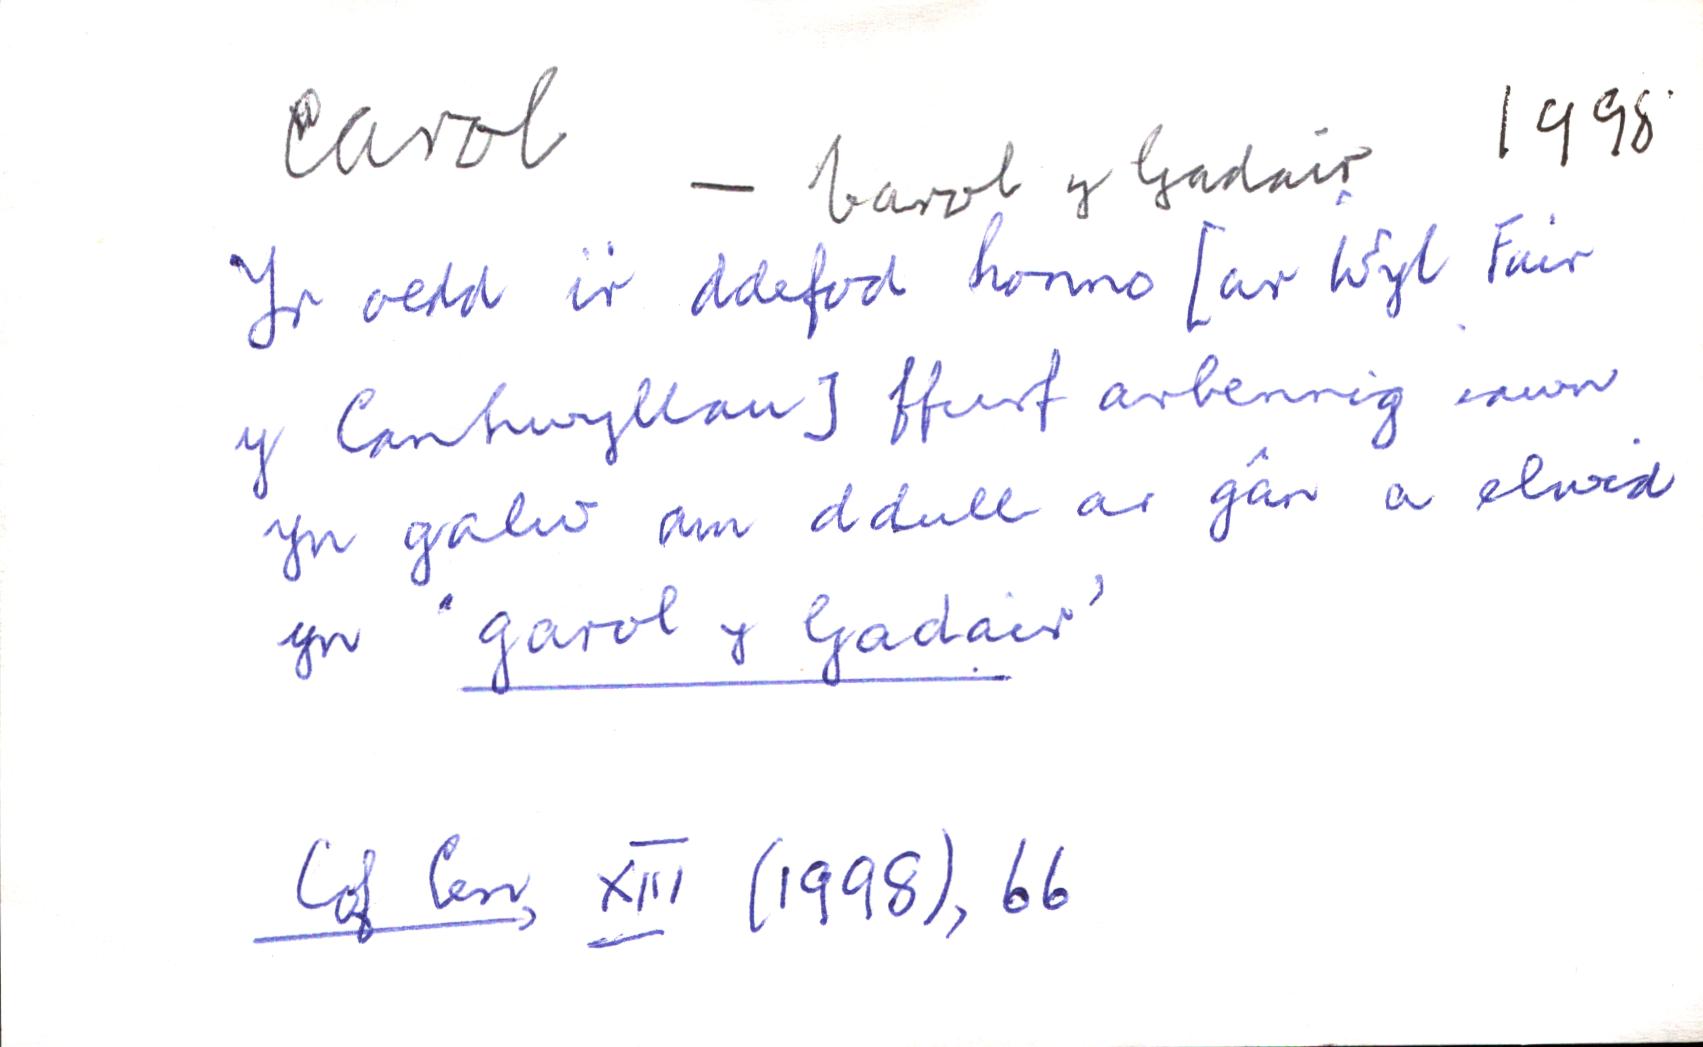 carol — Carol y Gadair 1998
Yr oedd i'r ddefod honno [ar Ŵyl Fair
y Canhwyllau] ffurf arbennig iawn
yn galw am ddull ar gân a elwid
yn 'garol y Gadair'
Cof Cen, XIII (1998), 66